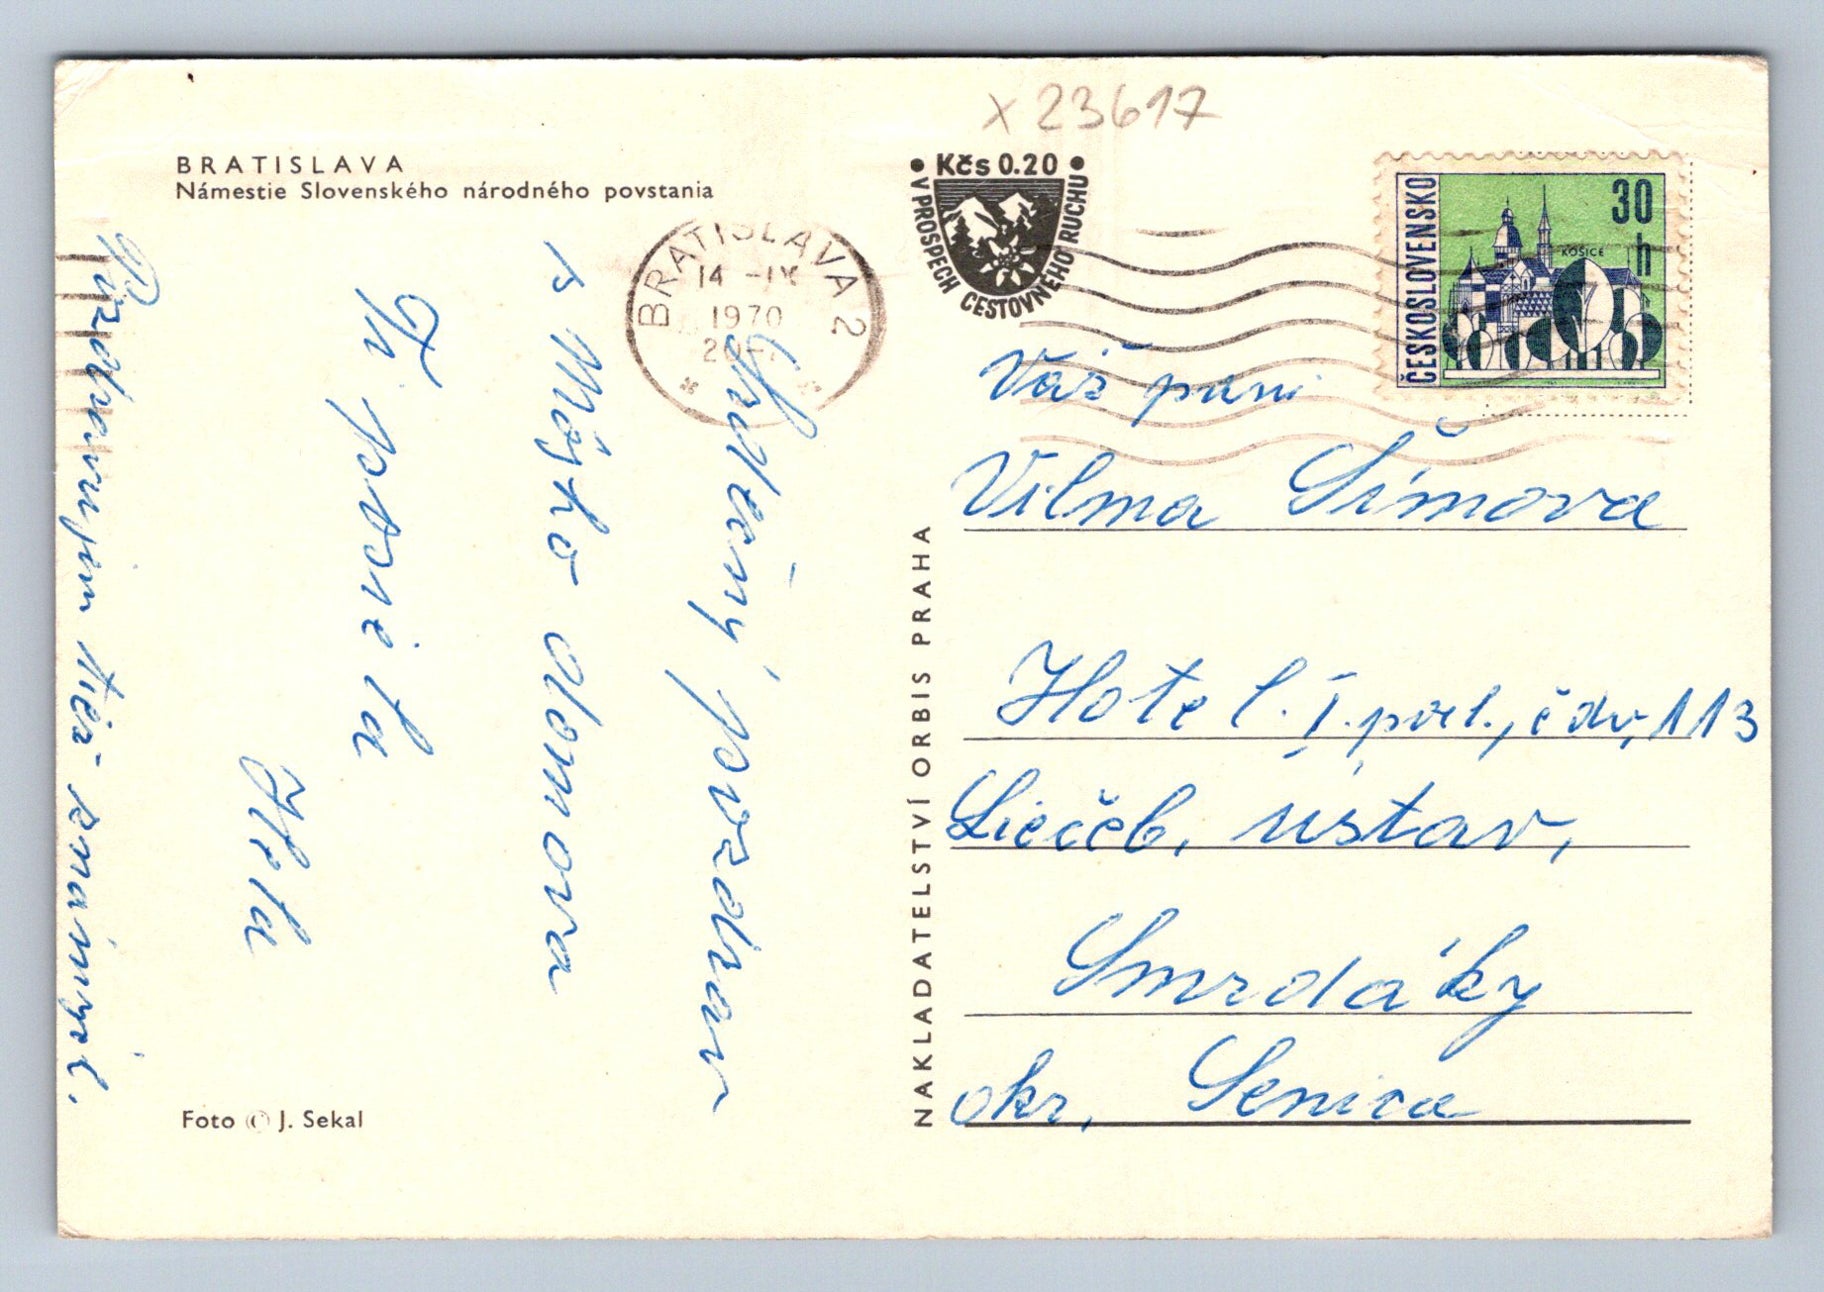 x 23617
BRATISLAVA
Námestie Slovenského národného povstania
• Kčs 0.20 •
V PROSPECH CESTOVNÉHO RUCHU
ČESKOSLOVENSKO
30 h
KOŠICE
BRATISLAVA 2
14 -IX
1970
Srdečný pozdrav
s Môjho domova
Ti posiela
Hela
Pozdravujem tiež známych.
NAKLADATELSTVÍ ORBIS PRAHA
Váž pani
Vilma Šímova
Hotel. I. pos., č dv, 113
Liečeb, ústav,
Smrdáky
okr, Senica
Foto © J. Sekal